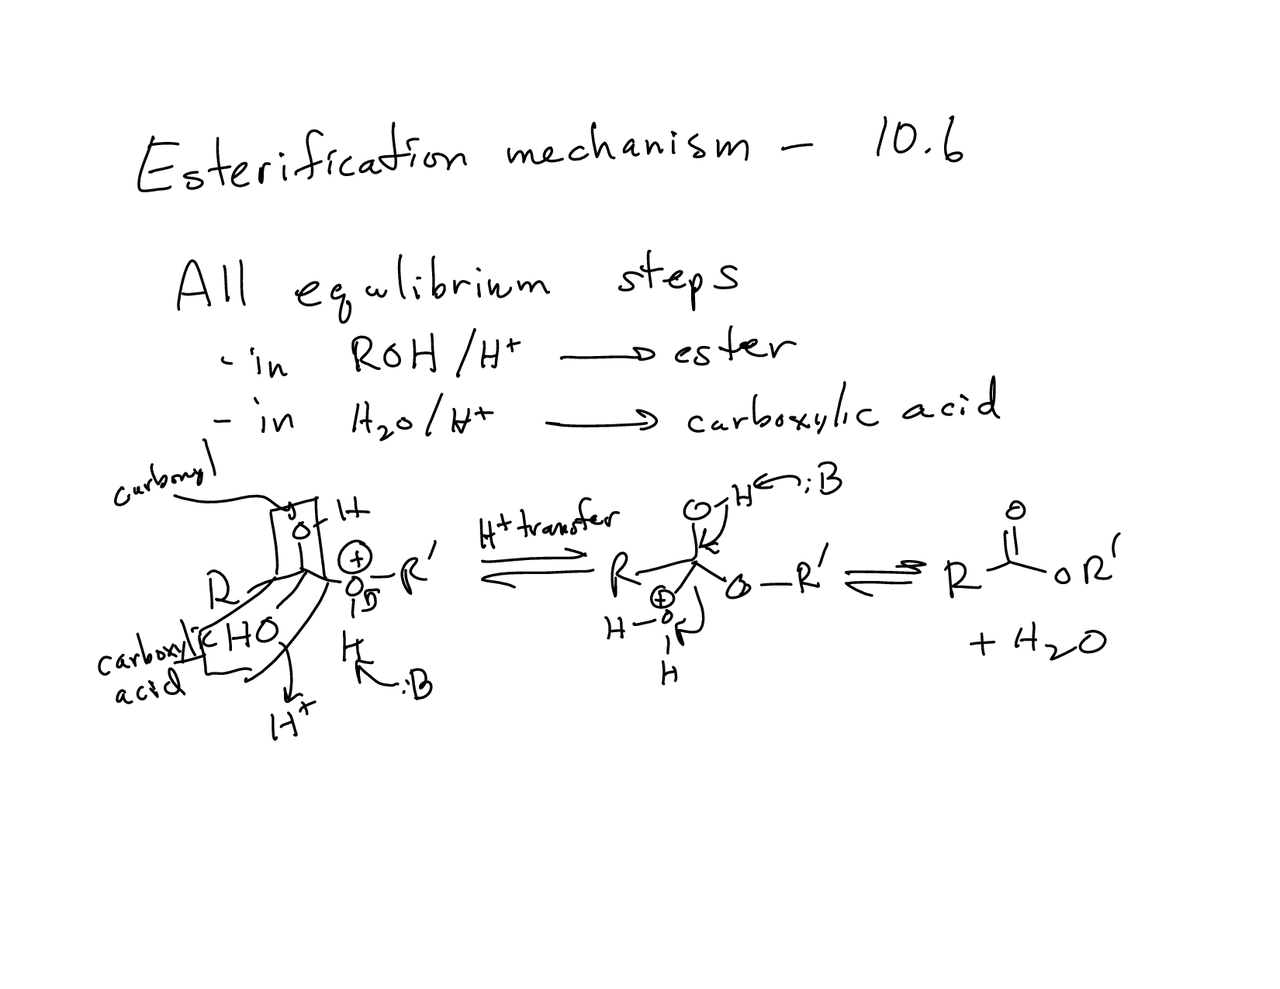 Esterification mechanism - 10.6
All equlibrium steps
- in ROH/H+ → ester
- in H2O/H+ → carboxylic acid
carbonyl
O-H
H+ transfer
R
⊕
O-R'
HO
H
:B
H+
carboxylic
acid
O H :B
R
O-R'
⊕
H-O
H
O
R OR'
+ H2O